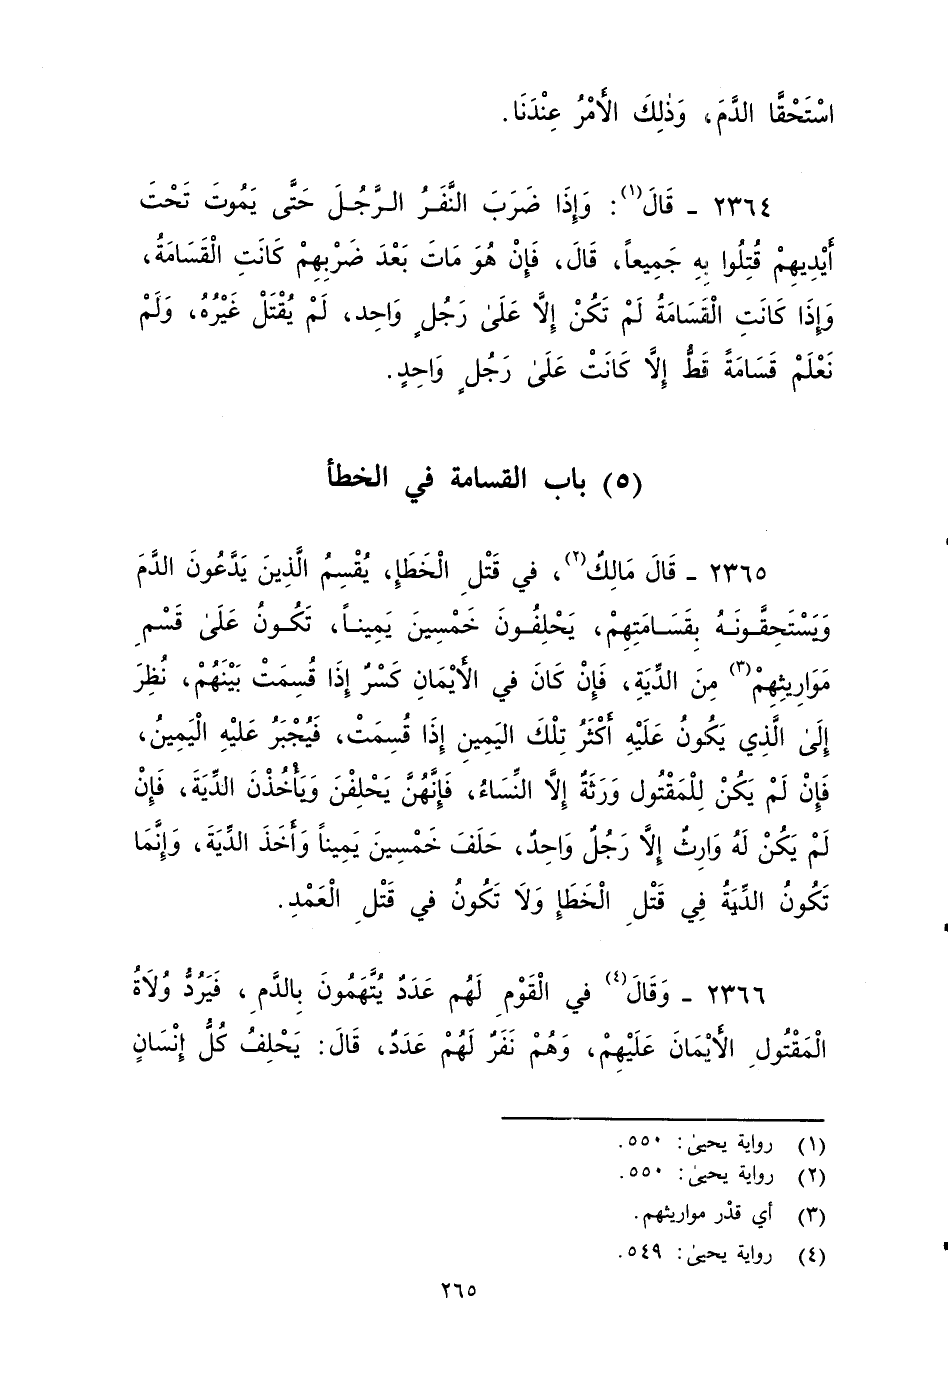 اسْتَحْقَّا الدَّمَ، وَذٰلِكَ الأَمْرُ عِنْدَنَا.
٢٣٦٤ ـ قَالَ(١): وَإِذَا ضَرَبَ النَّفَرُ الرَّجُلَ حَتَّى يَمُوتَ تَحْتَ
أَيْدِيهِمْ قُتِلُوا بِهِ جَمِيعاً، قَالَ، فَإِنْ هُوَ مَاتَ بَعْدَ ضَرْبِهِمْ كَانَتِ الْقَسَامَةُ،
وَإِذَا كَانَتِ الْقَسَامَةُ لَمْ تَكُنْ إِلَّا عَلَىٰ رَجُلٍ وَاحِد، لَمْ يُقْتَلْ غَيْرُهُ، وَلَمْ
نَعْلَمْ قَسَامَةً قَطُّ إِلَّا كَانَتْ عَلَىٰ رَجُلٍ وَاحِدٍ.
(٥) باب القسامة في الخطأ
٢٣٦٥ ـ قَالَ مَالِكٌ(٢)، في قَتْلِ الْخَطَإِ، يُقْسِمُ الَّذِينَ يَدَّعُونَ الدَّمَ
وَيَسْتَحِقَّونَهُ بِقَسَامَتِهِمْ، يَحْلِفُونَ خَمْسِينَ يَمِيناً، تَكُونُ عَلَىٰ قَسْمِ
مَوَارِيثِهِمْ(٣) مِنَ الدِّيَةِ، فَإِنْ كَانَ في الأَيْمَانِ كَسْرٌ إِذَا قُسِمَتْ بَيْنَهُمْ، نُظِرَ
إِلَىٰ الَّذِي يَكُونُ عَلَيْهِ أَكْثَرُ تِلْكَ اليَمِينِ إِذَا قُسِمَتْ، فَيُجْبَرُ عَلَيْهِ الْيَمِينُ،
فَإِنْ لَمْ يَكُنْ لِلْمَقْتُولِ وَرَثَةٌ إِلَّا النِّسَاءُ، فَإِنَّهُنَّ يَحْلِفْنَ وَيَأْخُذْنَ الدِّيَةَ، فَإِنْ
لَمْ يَكُنْ لَهُ وَارِثٌ إِلَّا رَجُلٌ وَاحِدٌ، حَلَفَ خَمْسِينَ يَمِيناً وَأَخَذَ الدِّيَةَ، وَإِنَّمَا
تَكُونُ الدِّيَةُ فِي قَتْلِ الْخَطَإِ وَلَا تَكُونُ في قَتْلِ الْعَمْدِ.
٢٣٦٦ ـ وَقَالَ(٤) في الْقَوْمِ لَهُم عَدَدٌ يُتَّهَمُونَ بِالدَّمِ، فَيَرُدُّ وُلَاةُ
الْمَقْتُولِ الأَيْمَانَ عَلَيْهِمْ، وَهُمْ نَفَرٌ لَهُمْ عَدَدٌ، قَالَ: يَحْلِفُ كُلُّ إِنْسَانٍ
(١) رواية يحيىٰ: ٥٥٠.
(٢) رواية يحيىٰ: ٥٥٠.
(٣) أي قدْر مواريثهم.
(٤) رواية يحيىٰ: ٥٤٩.
٢٦٥